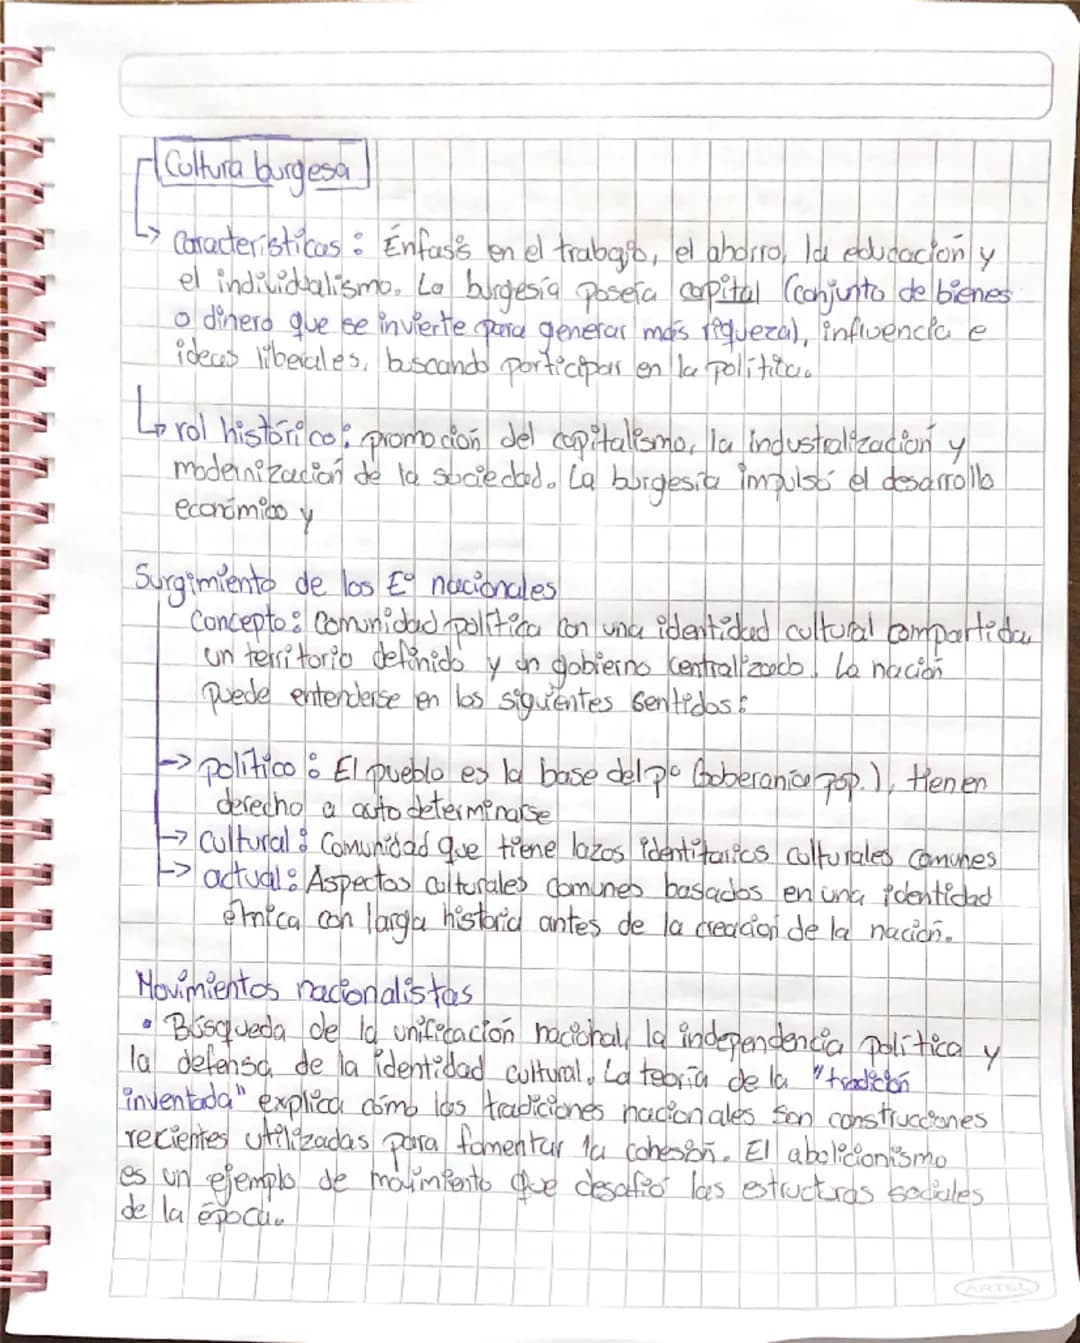 Cultura burgesa
Características: Énfasis en el trabajo, el ahorro, la educación y
el individualismo. La burgesía poseía capital (conjunto de bienes
o dinero que se invierte para generar más riqueza), influencia e
ideas liberales, buscando participar en la política.
rol histórico: promoción del capitalismo, la industralización y
modernización de la sociedad. La burgesía impulsó el desarrollo
económico y
Surgimiento de los E° nacionales
Concepto: Comunidad política con una identidad cultural compartida
un territorio definido y un gobierno centralizado. La nación
puede entenderse en los siguientes sentidos:
→ político: El pueblo es la base del p° (soberanía pop.), tienen
derecho a autodeterminarse
→ Cultural: Comunidad que tiene lazos identitarios culturales comunes
→ actual: Aspectos culturales comunes basados en una identidad
étnica con larga historia antes de la creación de la nación.
Movimientos nacionalistas
• Búsqueda de la unificación nacional, la independencia política y
la defensa de la identidad cultural. La teoría de la "tradición
inventada" explica cómo las tradiciones nacionales son construcciones
recientes utilizadas para fomentar la cohesión. El abolicionismo
es un ejemplo de movimiento que desafió las estructuras sociales
de la época.
ARTEL